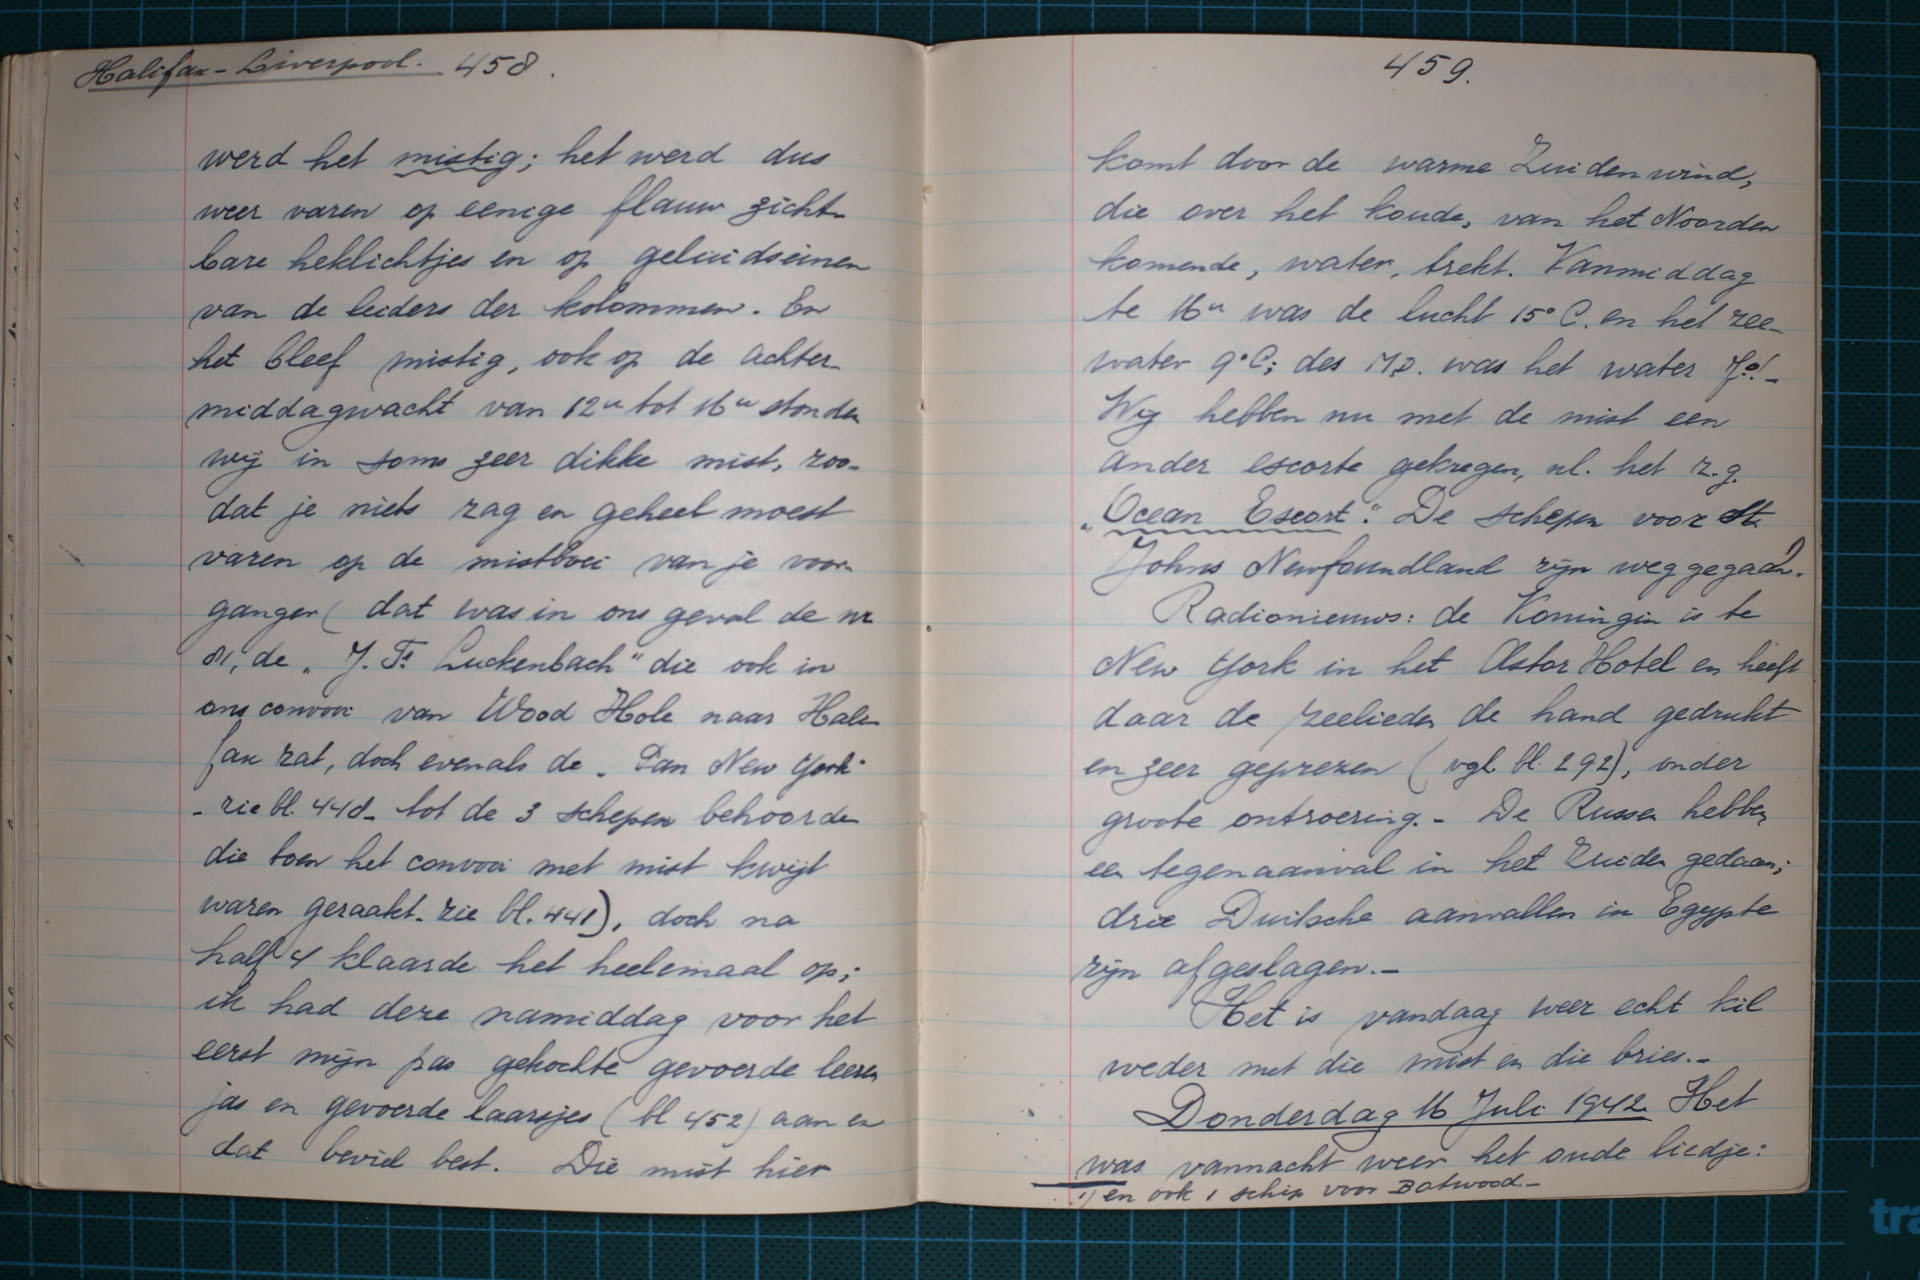 Halifax - Liverpool. 458.
werd het mistig; het werd dus
weer varen op eenige flauw zicht-
bare heklichtjes en op geluidseinen
van de leiders der kolommen. En
het bleef mistig, ook op de achter-
middagwacht van 12u tot 16u stonden
wij in soms zeer dikke mist, zoo-
dat je niets zag en geheel moest
varen op de mistboei van je voor-
ganger (dat was in ons geval de nr
81, de „J. F. Luckenbach" die ook in
ons convooi van Wood Hole naar Hali-
fax zat, doch evenals de „Pan New York"
- zie bl. 440 - tot de 3 schepen behoorden
die toen het convooi met mist kwijt
waren geraakt - zie bl. 441), doch na
half 4 klaarde het heelemaal op;
ik had deze namiddag voor het
eerst mijn pas gekochte gevoerde leeren
jas en gevoerde laarsjes (bl 452) aan en
dat beviel best. Die mist hier
459.
komt door de warme Zuidenwind,
die over het koude, van het Noorden
komende, water, trekt. Vanmiddag
te 16u was de lucht 15° C. en het zee-
water 9° C; des was het water 7°! -
Wij hebben nu met de mist een
ander escorte gekregen, nl. het z.g.
„Ocean Escort". De schepen voor St.
Johns Newfoundland zijn weggegaan.
Radionieuws: de Koningin is te
New York in het Astor Hotel en heeft
daar de zeelieden de hand gedrukt
en zeer geprezen (vgl. bl. 292), onder
groote ontroering. - De Russen hebben
een tegenaanval in het Zuiden gedaan;
drie Duitsche aanvallen in Egypte
zijn afgeslagen. -
Het is vandaag weer echt kil
weder met die mist en die bries. -
Donderdag 16 Juli 1942. Het
was vannacht weer het oude liedje:
1) en ook 1 schip voor Botwood. -